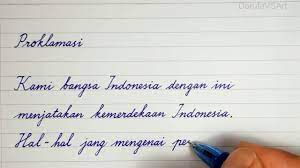 DarulaVSArt
Proklamasi
Kami bangsa Indonesia dengan ini
menjatakan kemerdekaan Indonesia.
Hal-hal jang mengenai pe